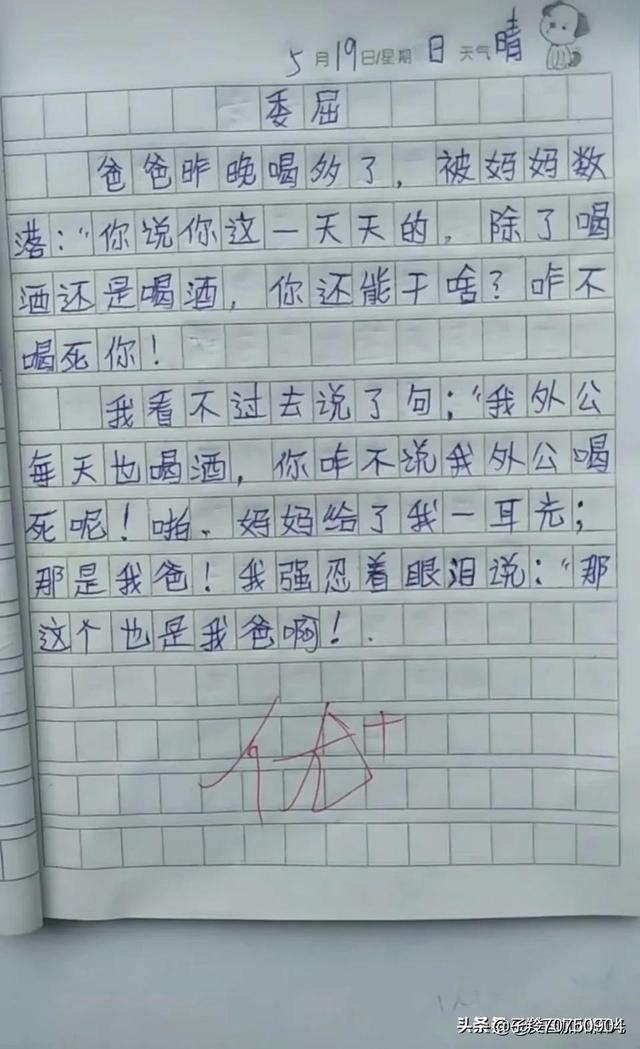 5月19日/星期日 天气晴
委屈
爸爸昨晚喝多了，被妈妈数
落："你说你这一天天的，除了喝
酒还是喝酒，你还能干啥？咋不
喝死你！
我看不过去说了句；"我外公
每天也喝酒，你咋不说我外公喝
死呢！啪、妈妈给了我一耳光；
那是我爸！我强忍着眼泪说："那
这个也是我爸啊！.
优+